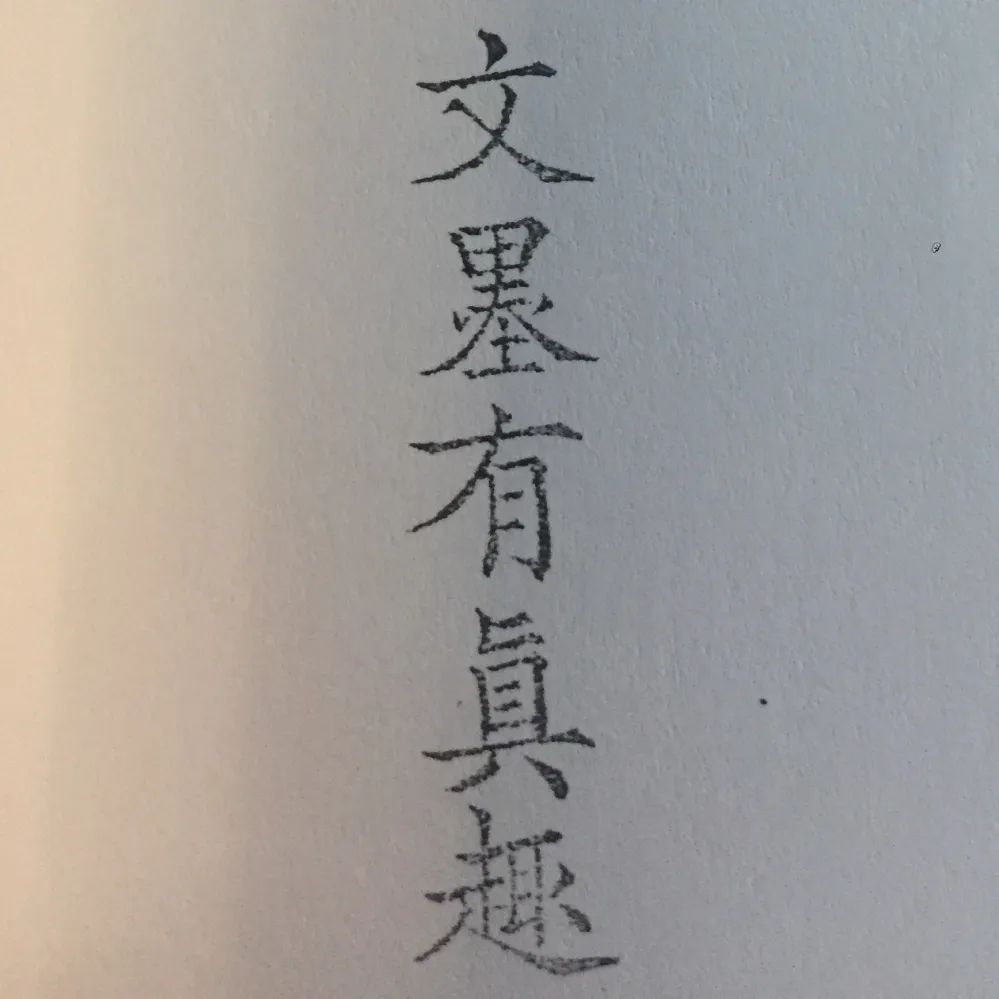 文墨有真趣